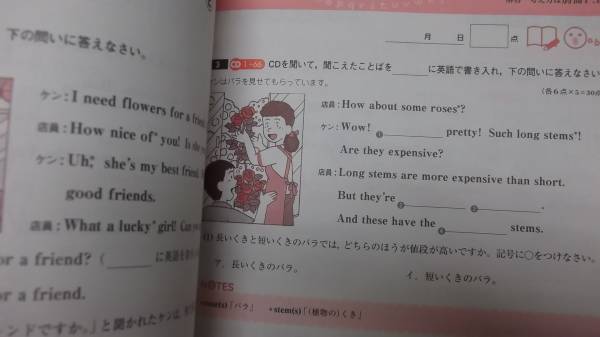 下の問いに答えなさい。
ケン：I need flowers for a
店員：How nice of* you! Is
ケン：Uh,* she's my best friend.
good friends.
店員：What a lucky* girl!
or a friend? (______ に英語を
or a friend.
ンドですか。」と聞かれたケンは、
月 日 点
3 CD 1-66 CDを聞いて，聞こえたことばを______に英語で書き入れ，下の問いに答えなさい
(各6点×5=30点
ンはバラを見せてもらっています。
店員：How about some roses*?
ケン：Wow! ❶__________ pretty! Such long stems*!
Are they expensive?
店員：Long stems are more expensive than short.
But they're ❷________ ❸________.
And these have the ❹________ stems.
(1) 長いくきと短いくきのバラでは，どちらのほうが値段が高いですか。記号に○をつけなさい。
ア．長いくきのバラ。 イ．短いくきのバラ。
NOTES
「バラ」 *stem(s)「(植物の)くき」